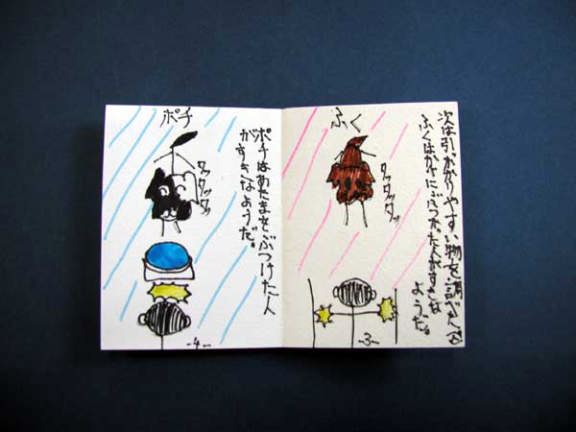 次は引っかかりやすい物を調べ
ふくはかべにぶつかった人がすきな
ようだ。
ふく
タッタッタッ
-3-
ポチはあたまをぶつけた人
がすきなようだ。
ポチ
タッタッタッ
-4-